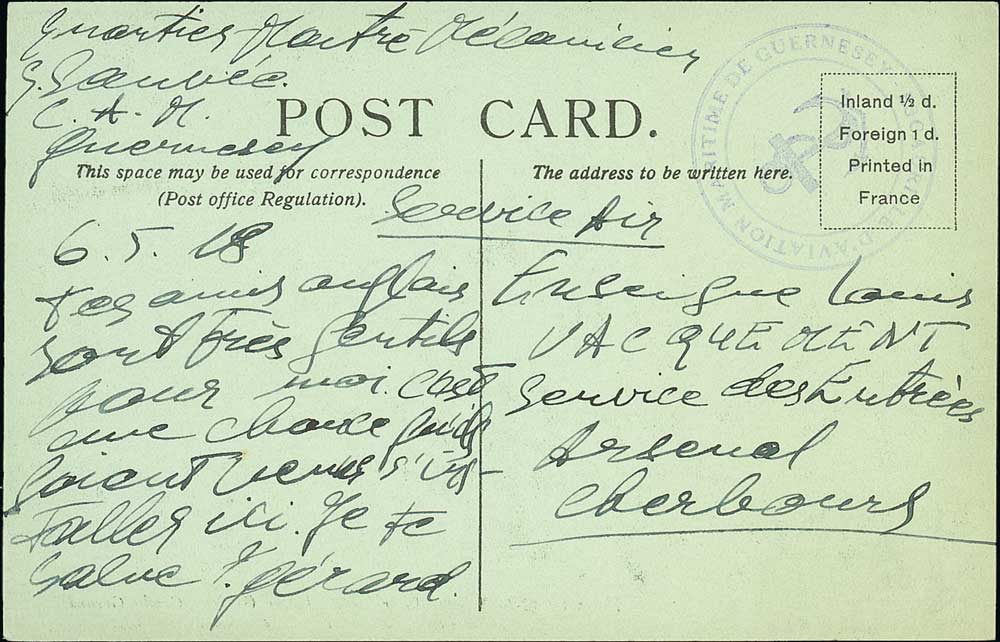 Quartier-Maitre Mécanicien
G. Sauvée.
C. A. M.
Guernesey
POST CARD.
This space may be used for correspondence
(Post office Regulation).
The address to be written here.
Inland ½ d.
Foreign 1 d.
Printed in
France
MARITIME DE GUERNESEY
D'AVIATION
Service Air
6. 5. 18
tes amis anglais
sont très gentils
pour moi. c'est
une chance qu'ils
soient venus s'ins-
taller ici. Je te
salue. gérard.
Enseigne Louis
VACQUEMENT
Service des Entrées
Arsenal
Cherbourg